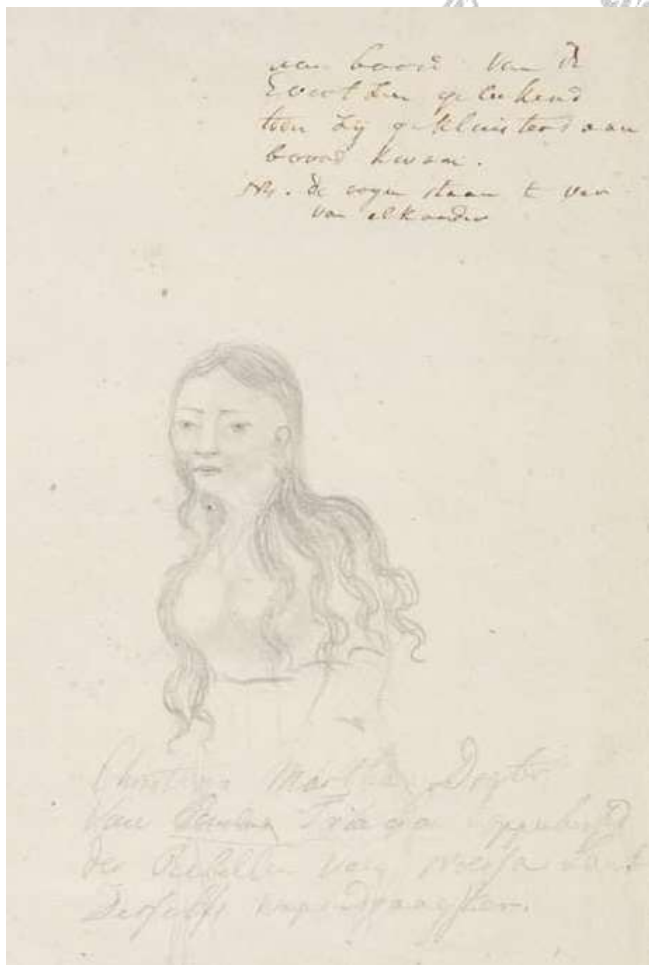 aan boord van de
Evertzen getekend
toen zij gekluisterd aan
boord kwam.
NB. de oogen staan te ver
van elkander
Christina Martha Dogter
Van Triago opperhoofd
der Rebellen van
wapendraagster.